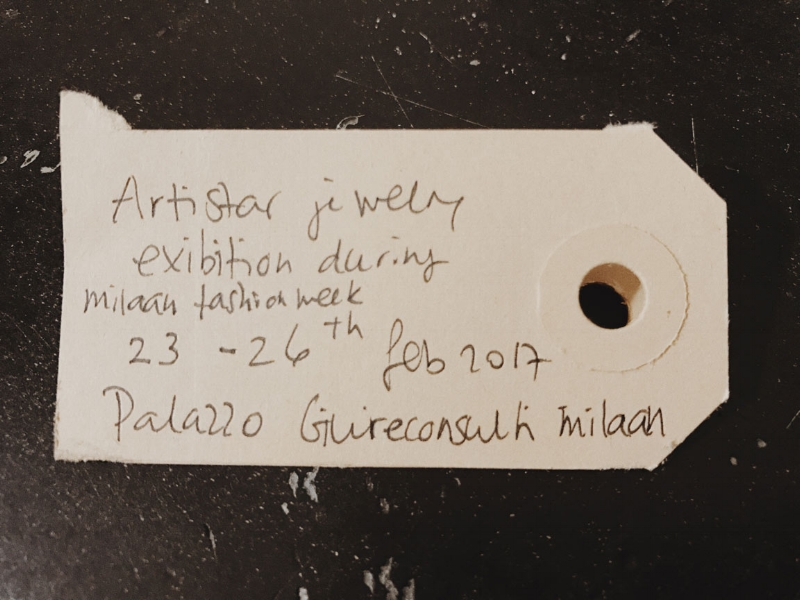 Artistar jewelry
exibition during
milaan fashion week
23 - 26th feb 2017
Palazzo Giureconsulti milaan